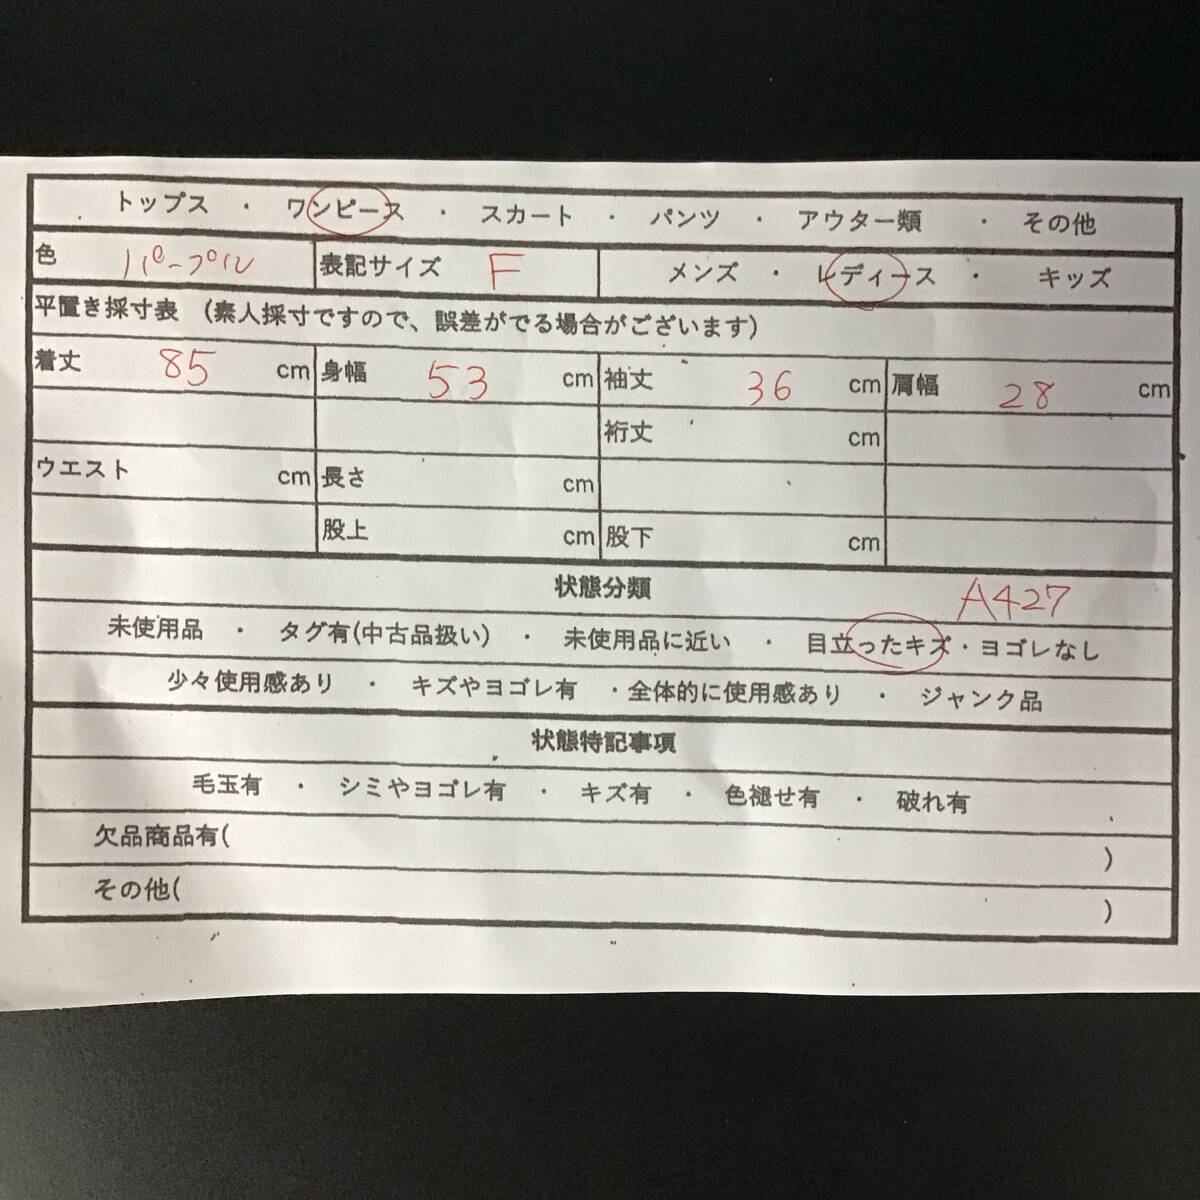 トップス ・ ワンピース ・ スカート ・ パンツ ・ アウター類 ・ その他
色 パープル 表記サイズ F メンズ ・ レディース ・ キッズ
平置き採寸表 (素人採寸ですので、誤差がでる場合がございます)
着丈 85 cm 身幅 53 cm 袖丈 36 cm 肩幅 28 cm
裄丈 cm
ウエスト cm 長さ cm
股上 cm 股下 cm
状態分類 A427
未使用品 ・ タグ有(中古品扱い) ・ 未使用品に近い ・ 目立ったキズ・ヨゴレなし
少々使用感あり ・ キズやヨゴレ有 ・全体的に使用感あり ・ ジャンク品
状態特記事項
毛玉有 ・ シミやヨゴレ有 ・ キズ有 ・ 色褪せ有 ・ 破れ有
欠品商品有( )
その他( )